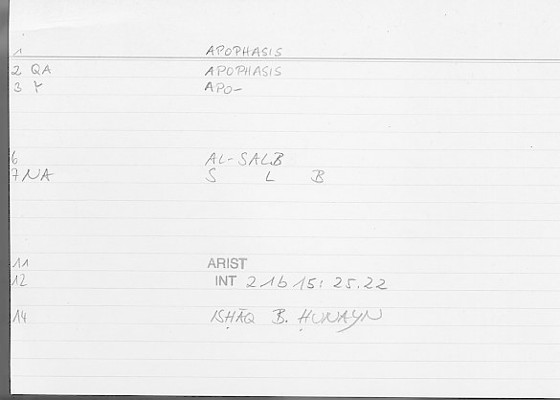 1 APOPHASIS
2 QA APOPHASIS
3 Y APO-
6 AL-SALB
7 NA S L B
11 ARIST
12 INT 21b15: 25.22
14 ISḤĀQ B. ḤUNAYN